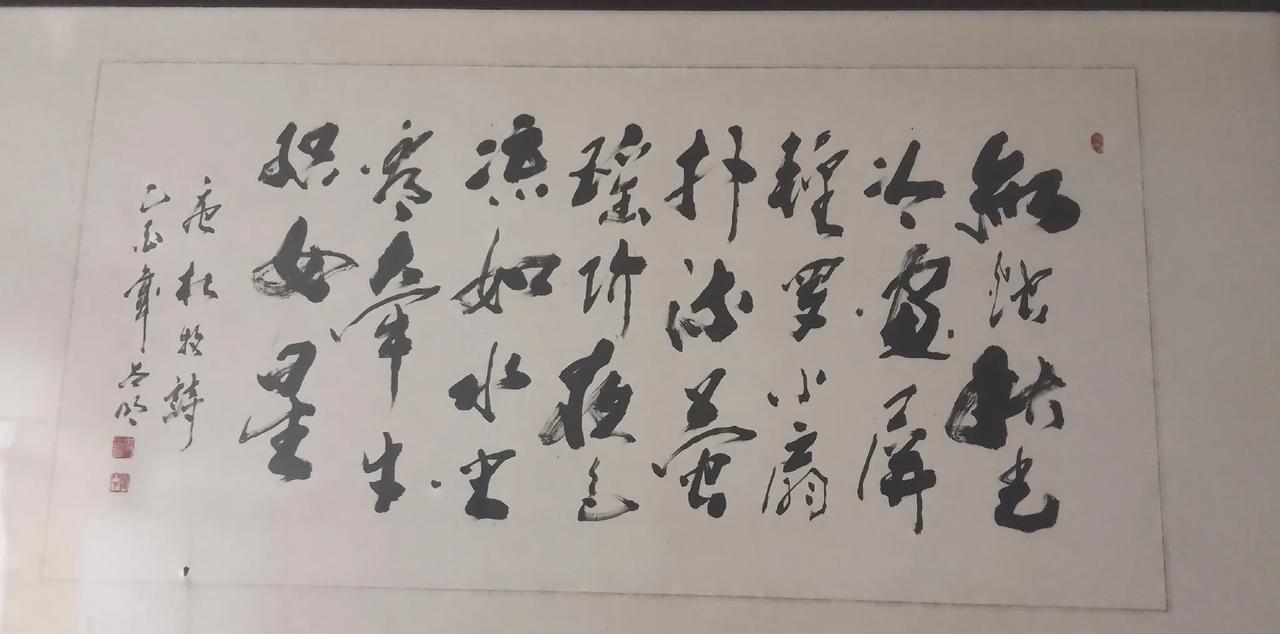 銀烛秋光
冷畫屏
輕罗小扇
扑流萤
瑶阶夜色
凉如水坐
看牵牛
织女星
唐杜牧詩
乙酉年